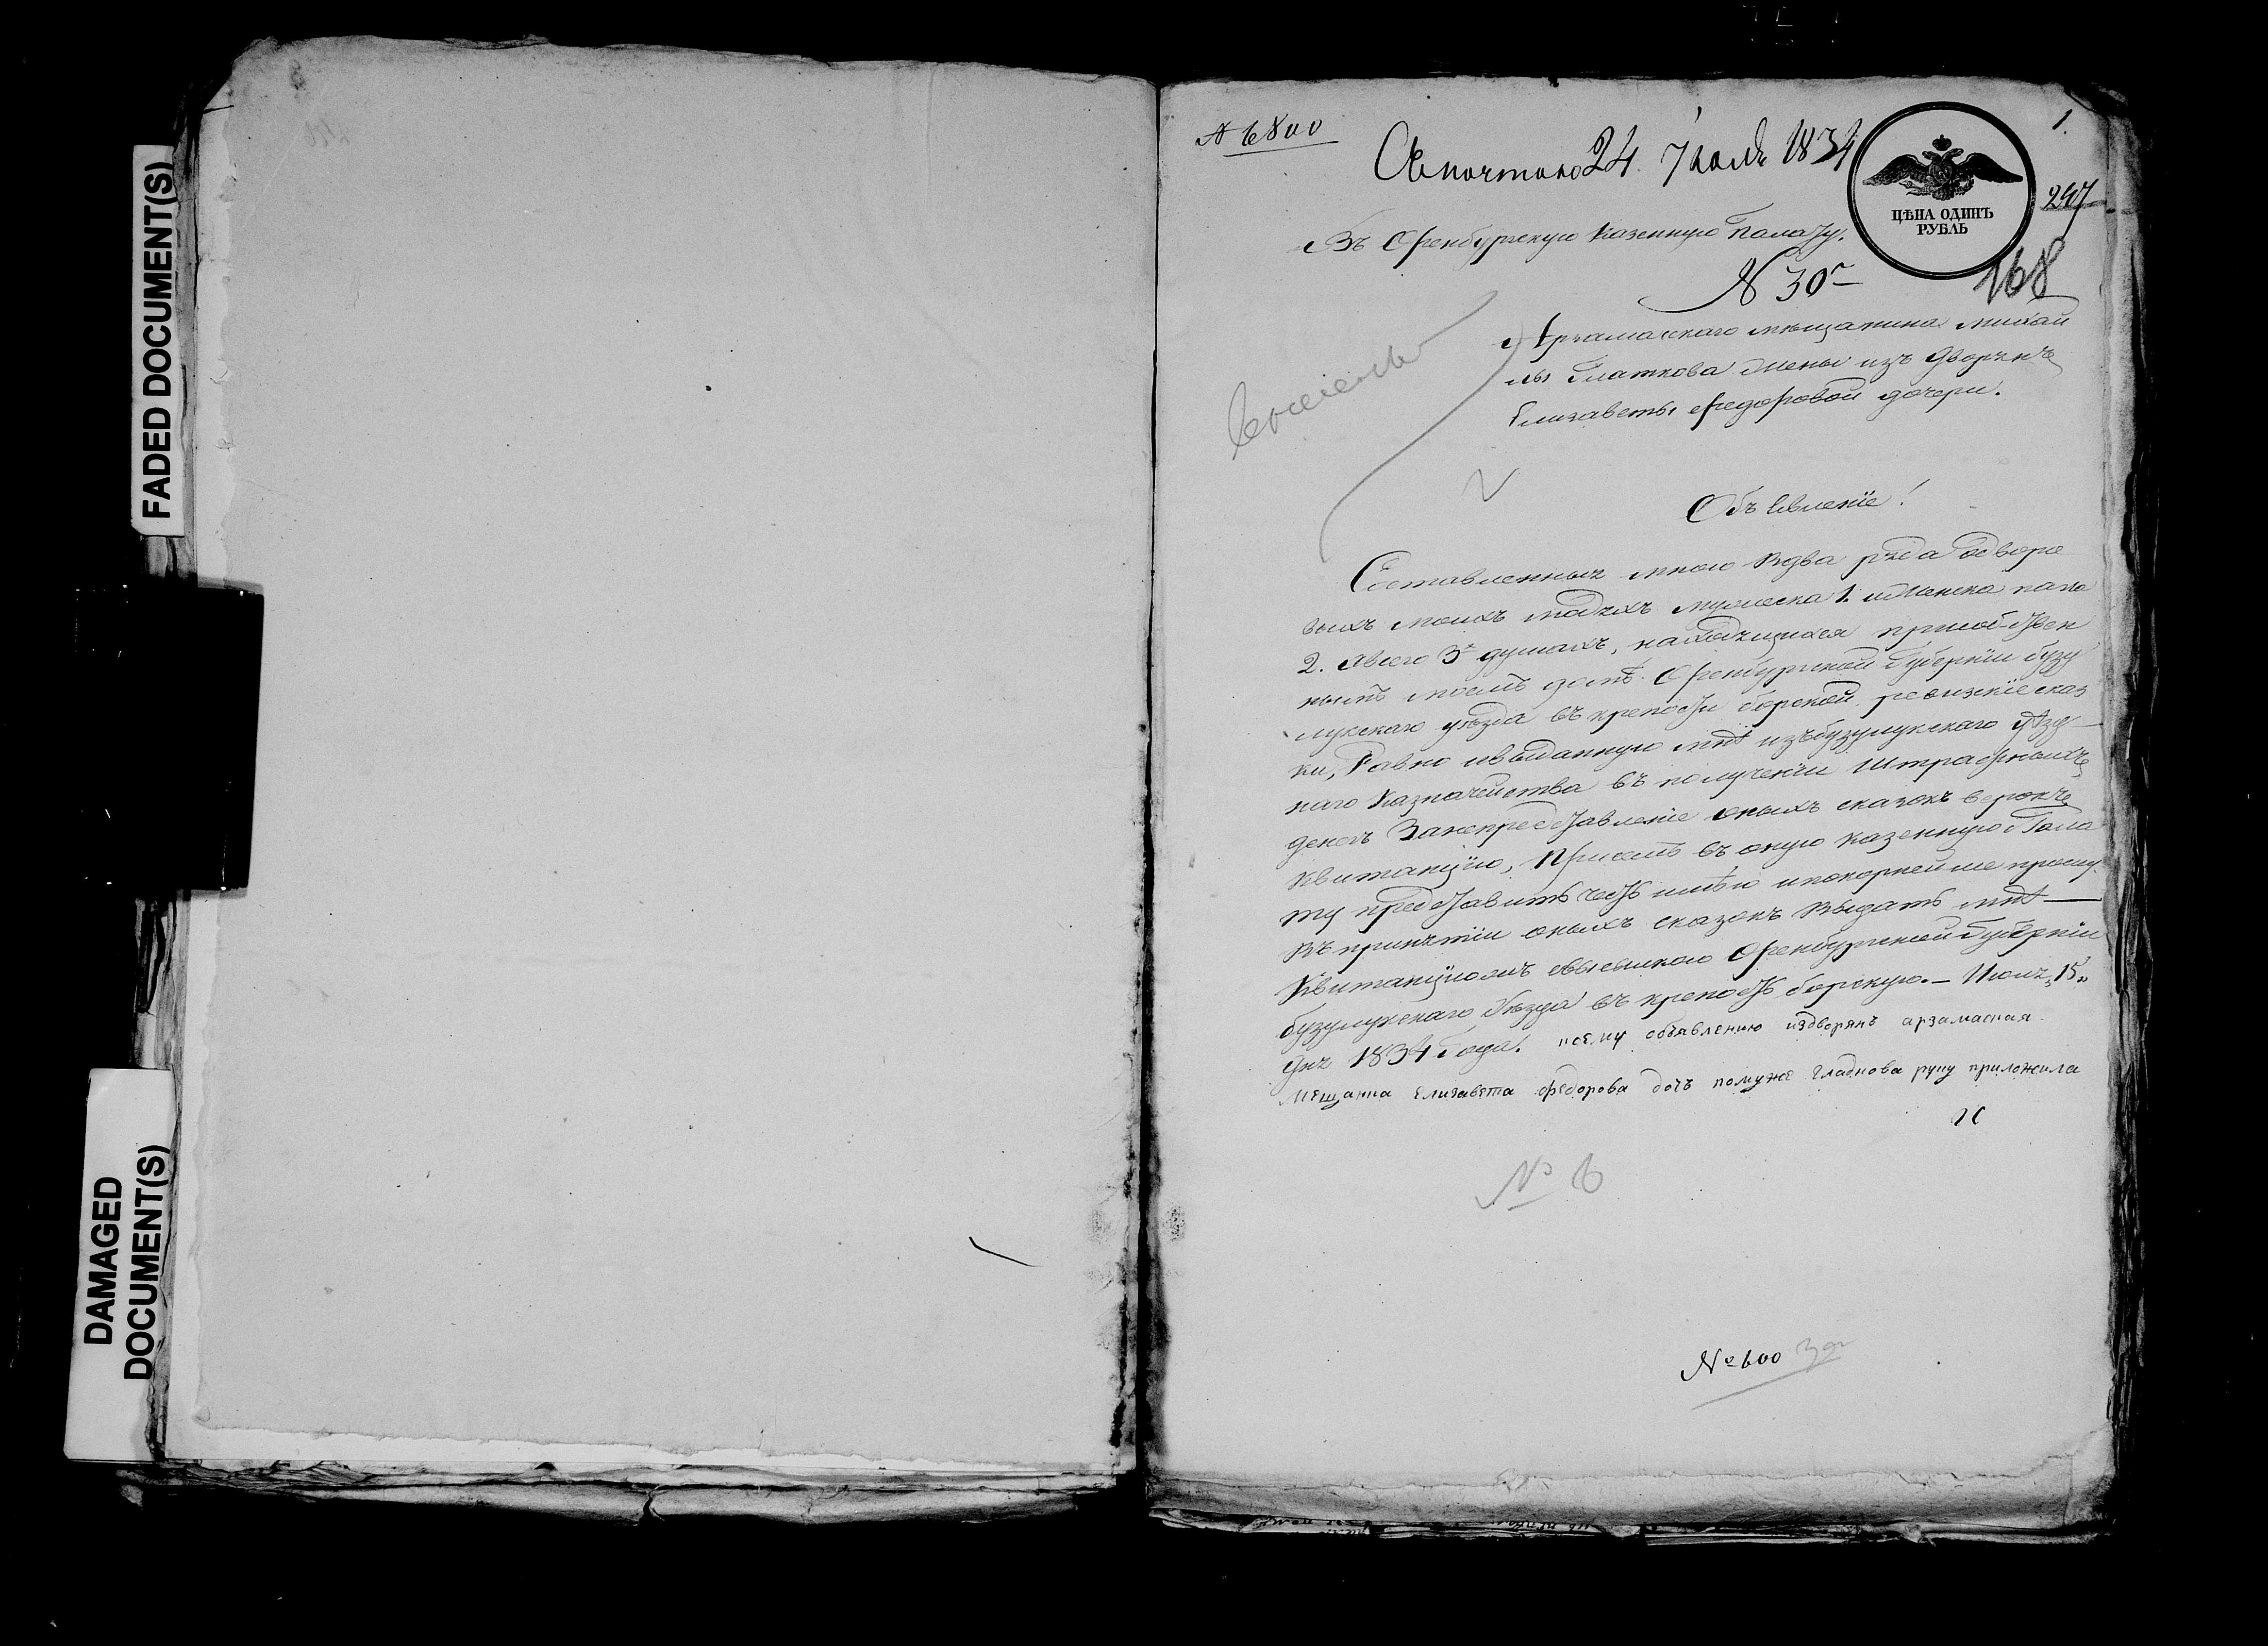 FADED DOCUMENT(S)
DAMAGED
DOCUMENT(S)
1.
Съ почтою 24 Июля 1834
ЦѢНА ОДИНЪ
РУБЛЬ
247
168
Въ Оренбургскую Казенную Палату.
№ 30
Арзамаскаго мещанина михаи
лы Глаткова жены изъ Дворянъ
Елизаветы Федоровой дочери.
Объявленіе!
Составленныя мною вдва ряда одворо
выхъ моихъ людяхъ мужеска 1. иженска пола
2. авсего 3х душахъ, находящихся присобствен
номъ моемъ доме Оренбургской Губерніи бузу
лукскаго уѣзда въ крепости борской ревизскіе сказ
ки, Равно ивыданную мнѣ изъбузулукскаго уѣзд
наго Казначейства въ полученіи штрафныхъ
денегъ Занепредставленіе оныхъ сказокъ всрокъ
квитанцію, Присемъ въ оную казенную Пала
ту представить честь имѣю ипокорнейше прошу
въ принятіи оныхъ сказокъ выдать мнѣ
Квитанцію свысылкою Оренбургской Губерніи
бузулукскаго Уѣзда въ крепость борскую. – Июля 15"
дня 1834 Года. ксему объявлению издворянъ арзамаская
мещанка елизавета федорова дочъ помуже гладкова руку приложила
№ 6
№ 600